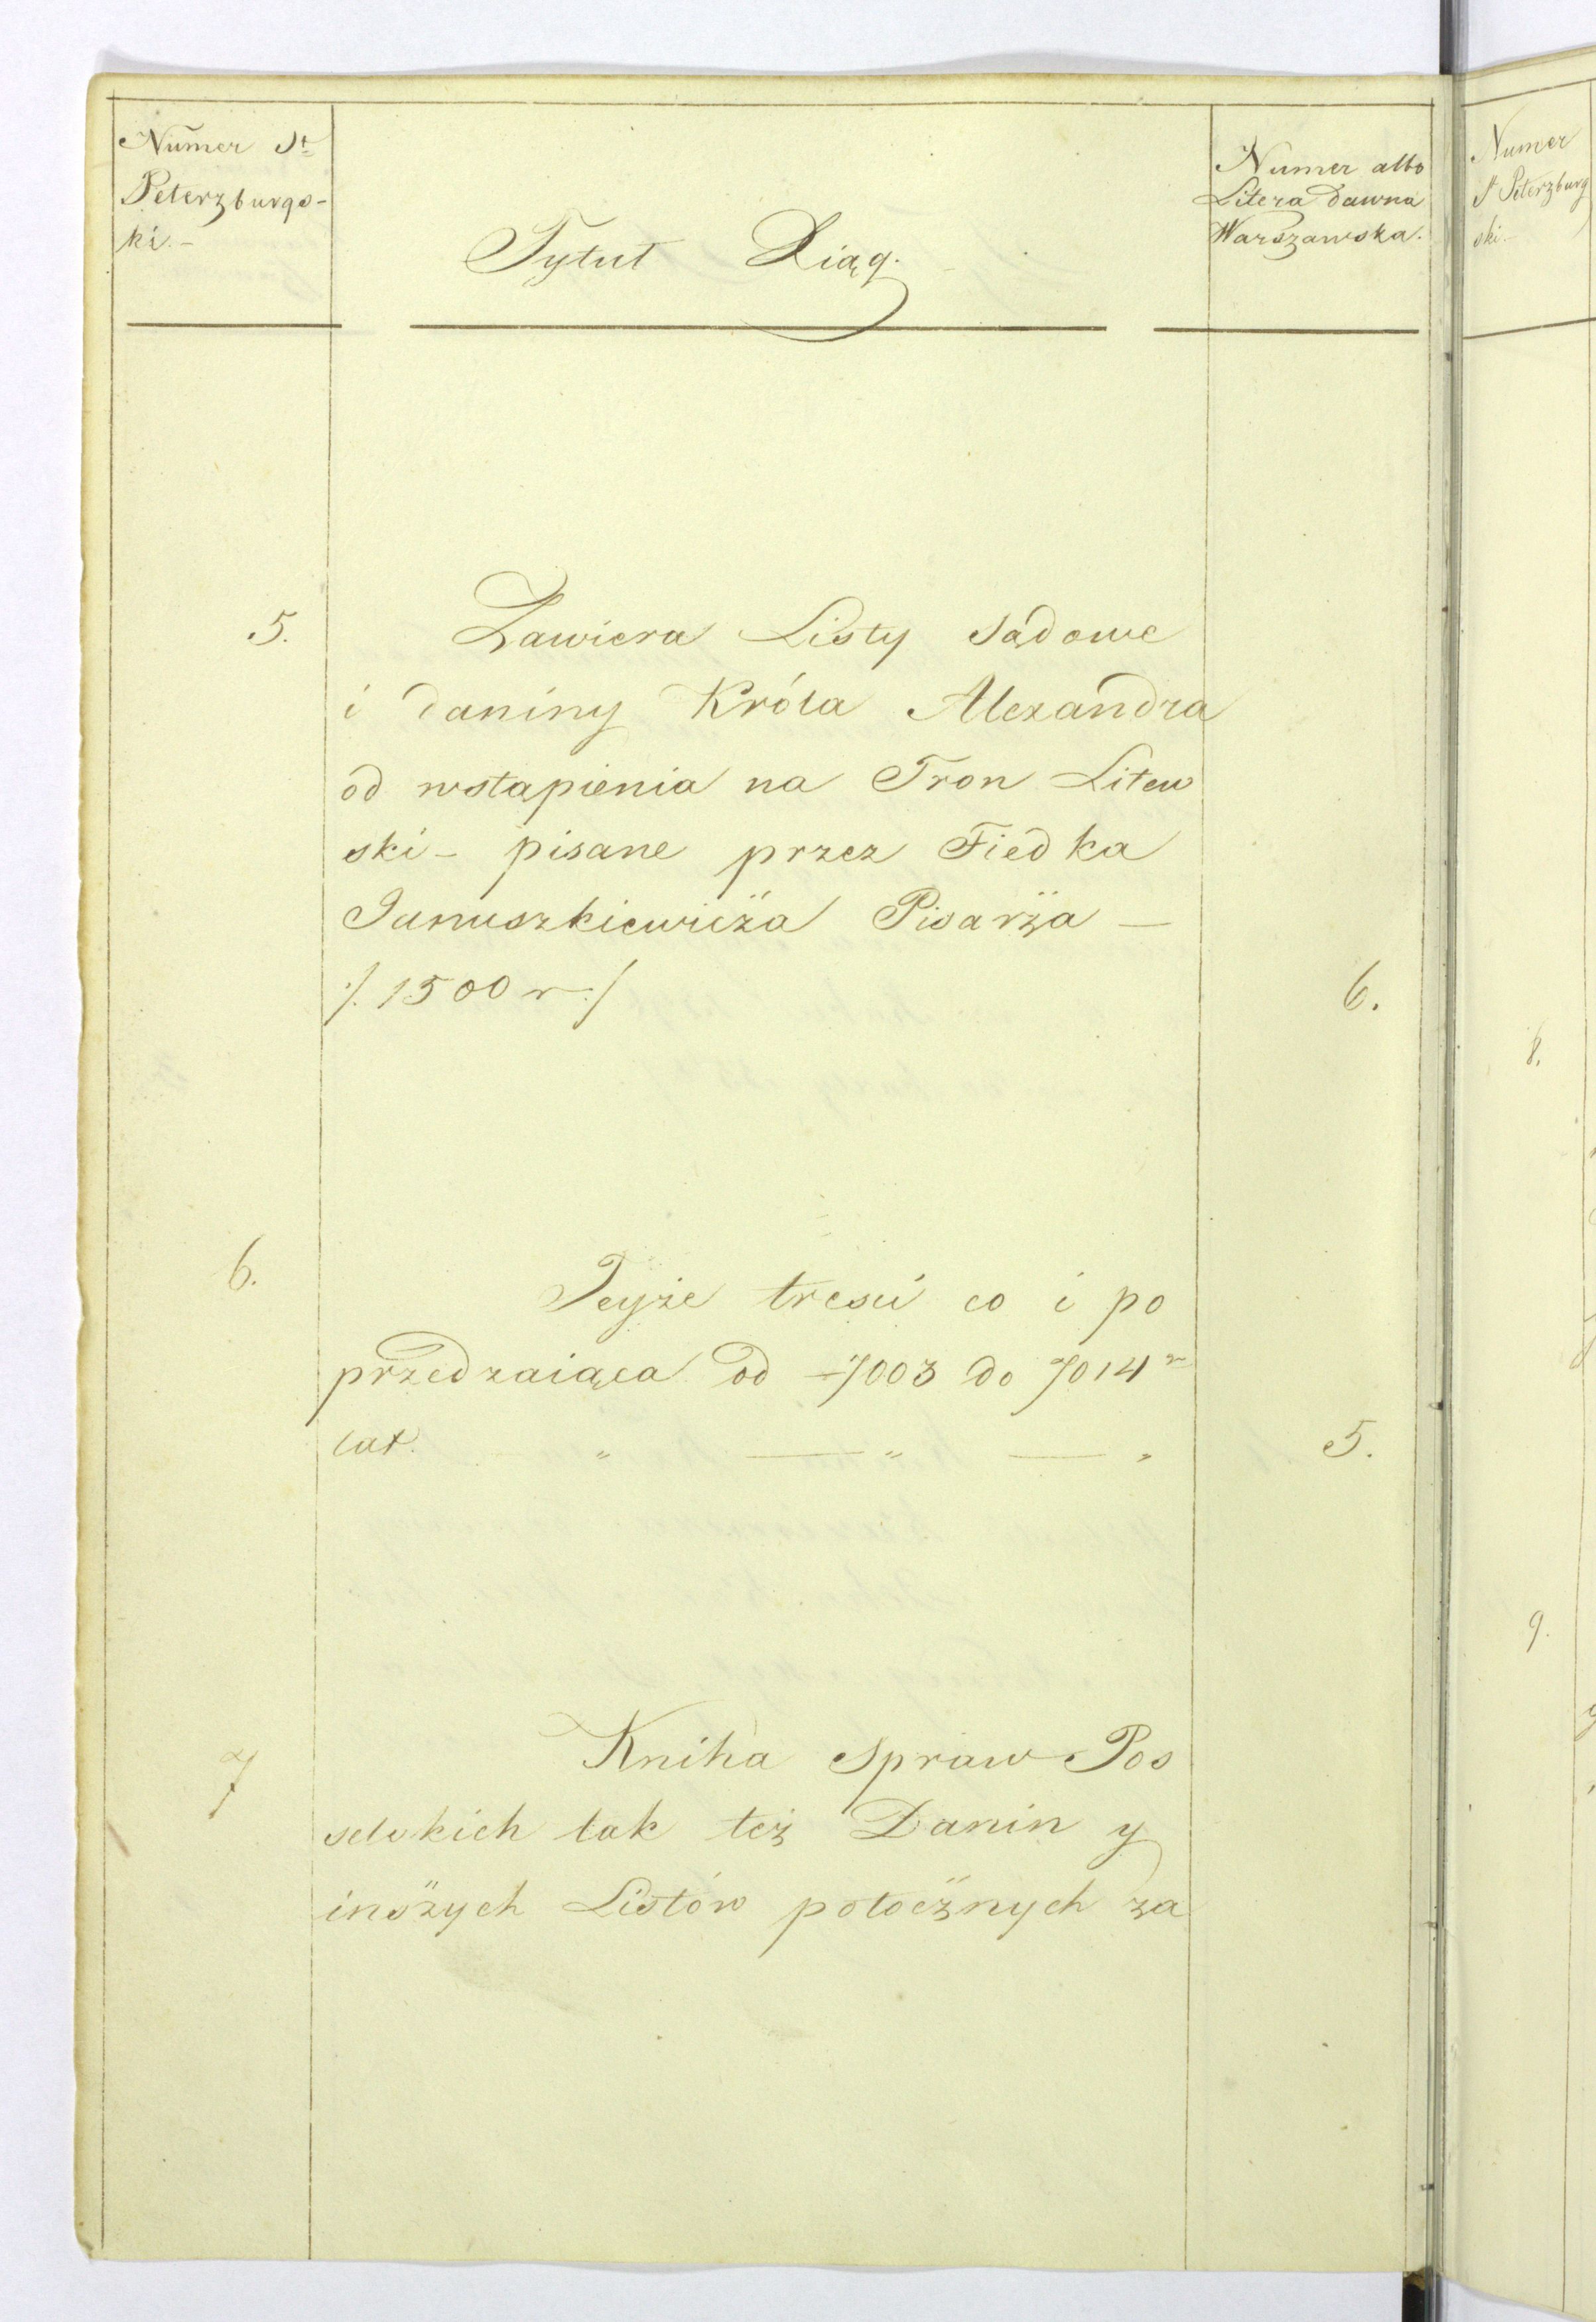 Numer St
Peterzburgs-
ki.-
Tytuł Xiąg.
Numer albo
Litera dawna
Warszawska.
5.
Zawiera Listy Sądowe
i daniny Króla Alexandra
od wstąpienia na Tron Litew
ski - pisane przez Fiedka
Januszkiewicza Pisarza —
/. 1500 r ./
6.
6.
Teyże tresci co i po
przedzaiąca od 7003 do 7014 r
lat. " — " — "
5.
7
Kniha Spraw Pos
selskich tak też Danin y
inszych Listów potocznych za
Numer
St Peterzburg
ski.-
8.
9.